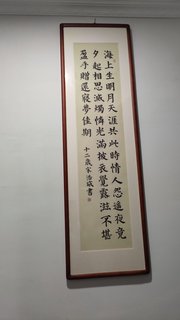 海上生明月天涯共此時情人怨遙夜竟
夕起相思滅燭憐光滿披衣覺露滋不堪
盈手贈還寢夢佳期
十二歲家浩書